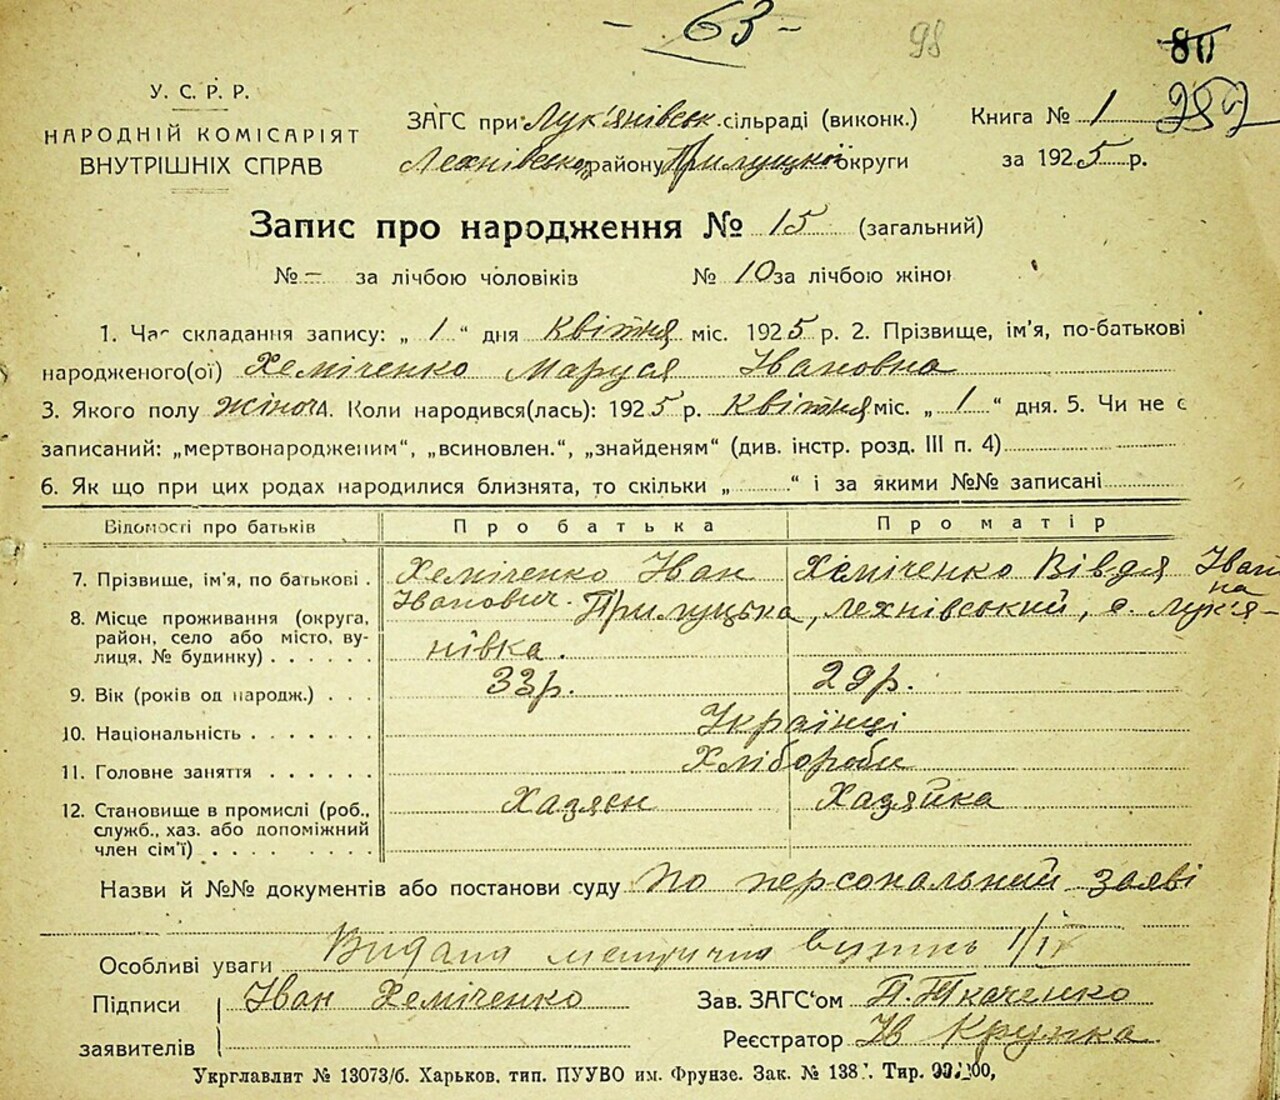 - 63 -
98
80
У. С. Р. Р.
НАРОДНІЙ КОМІСАРІЯТ
ВНУТРІШНІХ СПРАВ
ЗАГС при Лук'янівськ. сільраді (виконк.)
району Прилуцької округи
Книга № 1
за 1925 р.
Запис про народження № 15 (загальний)
№ - за лічбою чоловіків № 10 за лічбою жіно
1. Час складання запису: „ 1 “ дня Квітня міс. 1925 р. 2. Прізвище, ім'я, по-батькові
народженого(ої) Хеміченко Маруся Івановна
3. Якого полу жіноч 4. Коли народився(лась): 1925 р. Квітня міс. „ 1 “ дня. 5. Чи не є
записаний: „мертвонародженим“, „всиновлен.“, „знайденям“ (див. інстр. розд. III п. 4)
6. Як що при цих родах народилися близнята, то скільки „ “ і за якими №№ записані
Відомості про батьків Про батька Про матір
7. Прізвище, ім'я, по батькові . Хеміченко Іван Іванович. Хеміченко Вівдя Іванна
8. Місце проживання (округа, Прилуцька, Лехнівський, с. Лук'я-
район, село або місто, ву-
лиця, № будинку) . . . . . . нівка.
9. Вік (років од народж.) . . . 33р. 29р.
10. Національність . . . . . . . Українці
11. Головне заняття . . . . . . Хлібороби
12. Становище в промислі (роб., Хазяєн Хазяйка
служб., хаз. або допоміжний
член сім'ї) . . . . . . . .
Назви й №№ документів або постанови суду по персональний заяві
Особливі уваги Видана метрична 1/IV
Підписи Іван Хеміченко
заявителів
Зав. ЗАГС'ом П. Ткаченко
Реєстратор Ів Крупка
Укрглавлит № 13073/б. Харьков, тип. ПУУВО им. Фрунзе. Зак. № 138 Тир.